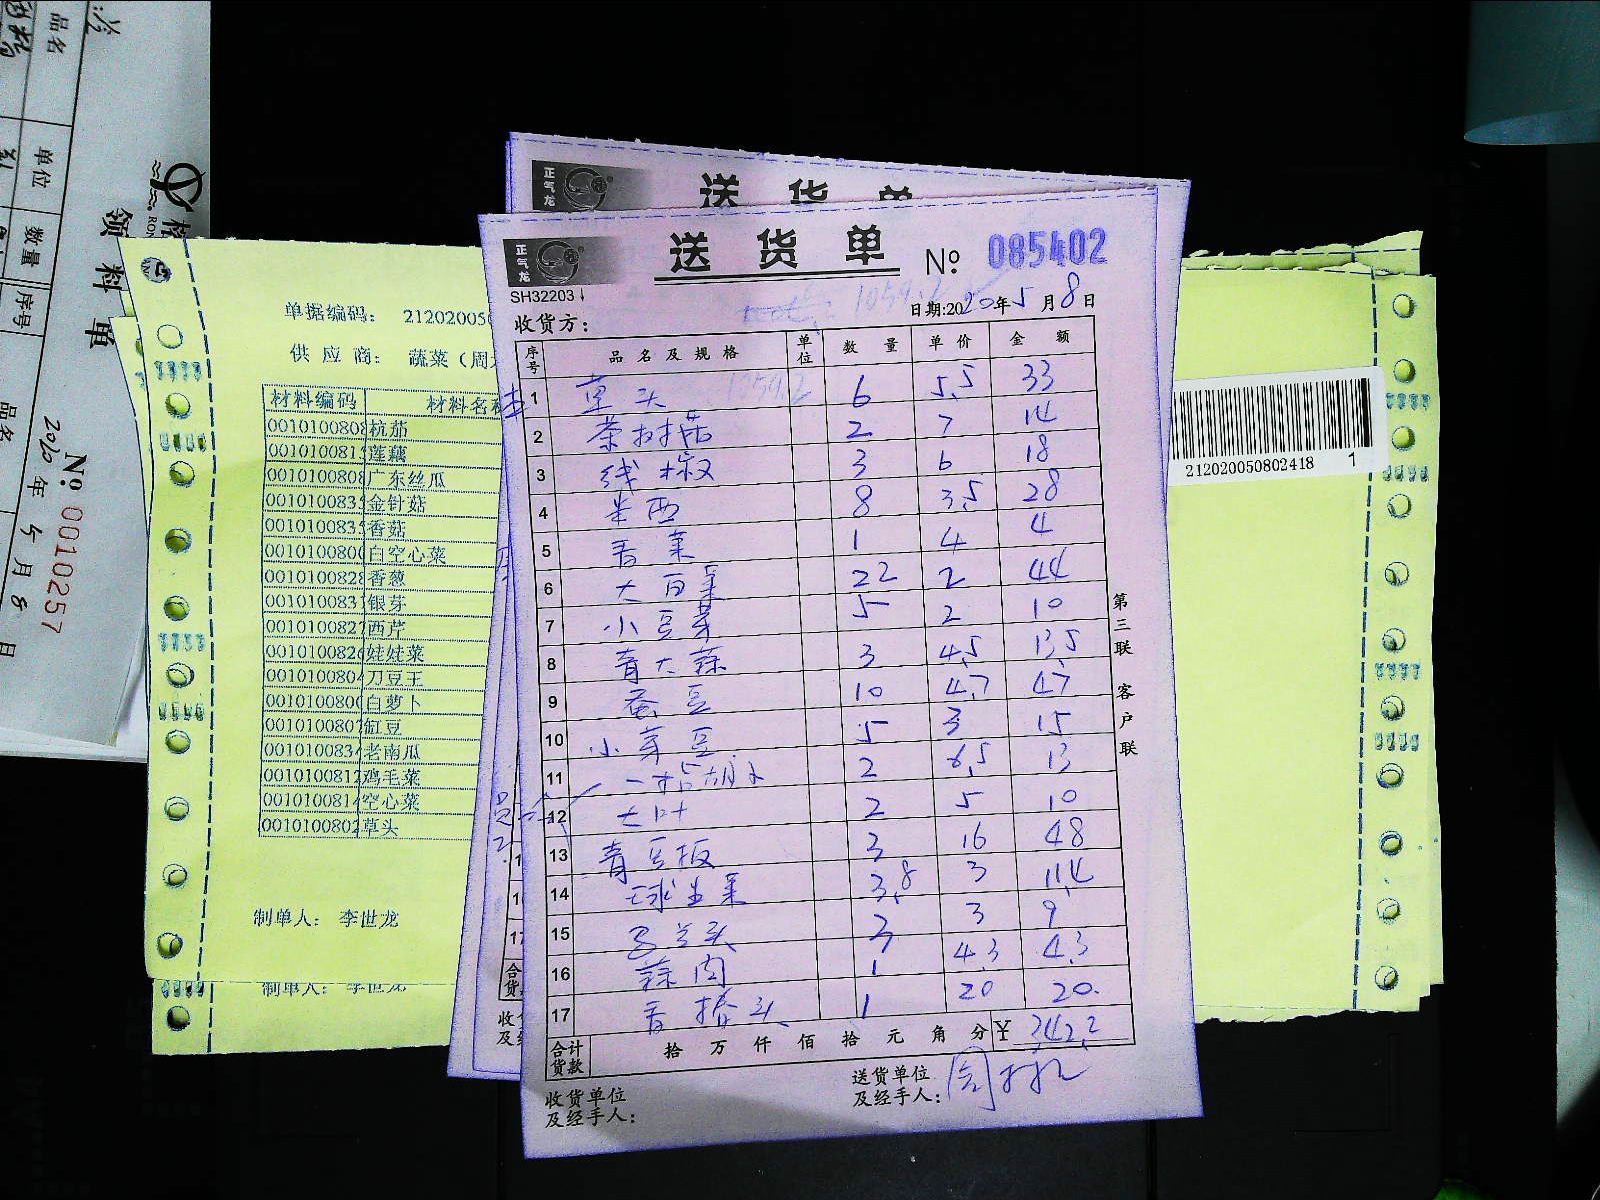 送货单
正气龙
送货单 № 085402
SH32203
收货方：
日期:2020年5月8日
序号 品名及规格 单位 数量 单价 金额
1 草头 6 5.5 33
2 茶树菇 2 7 14
3 线椒 3 6 18
4 米西 8 3.5 28
5 香菜 1 4 4
6 大白菜 22 2 44
7 小豆芽 5 2 10
8 青大蒜 3 4.5 13.5
9 蚕豆 10 4.7 47
10 小芽豆 5 3 15
11 2 6.5 13
12 大叶 2 5 10
13 青豆板 3 16 48
14 球生菜 3.8 3 11.4
15 3 3 9
16 蒜肉 1 4.3 4.3
17 1 20 20.
合计货款 拾万仟佰拾元角分 ¥ 342.2
收货单位及经手人：
送货单位及经手人：
第三联 客户联
单据编码： 212020050
供应商： 蔬菜（周
材料编码 材料名称
0010100808 杭茄
001010081 莲藕
0010100808 广东丝瓜
001010083 金针菇
001010083 香菇
0010100800 白空心菜
0010100828 香葱
001010083 银芽
001010082 西芹
0010100820 娃娃菜
001010080 刀豆王
0010100800 白萝卜
001010080 缸豆
001010083 老南瓜
001010081 鸡毛菜
001010081 空心菜
0010100802 草头
制单人： 李世龙
制单人： 李世龙
212020050802418 1
领料单
№ 0010257
2020年5月8日
品名 单位 数量 序号 品名